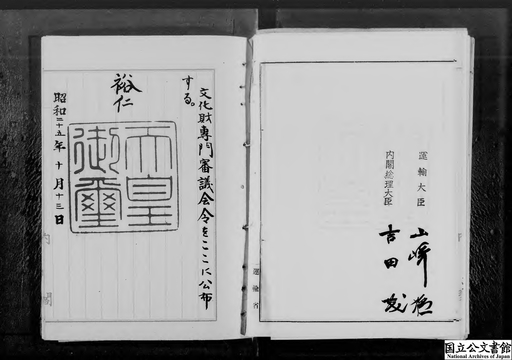 運輸大臣
山﨑猛
内閣総理大臣
吉田茂
文化財専門審議会令をここに公布
する。
裕仁
天皇御璽
昭和二十五年十月十三日
内閣
運輸省
国立公文書館
National Archives of Japan